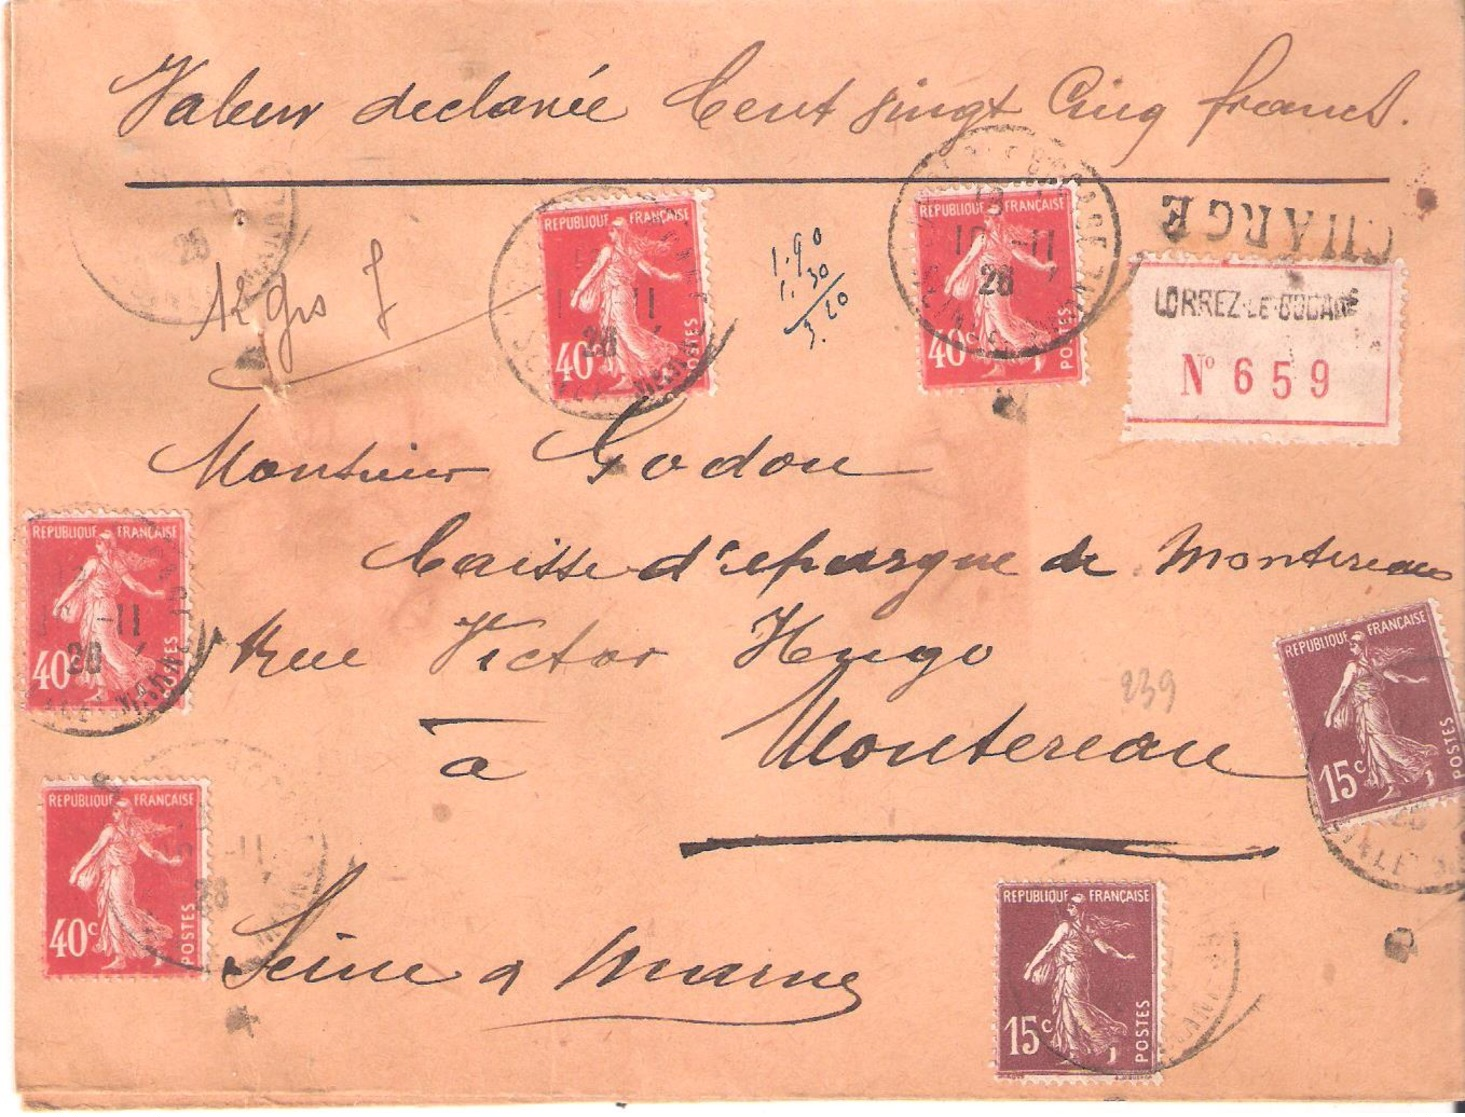 Valeur declarée Cent vingt Cinq francs.
CHARGÉ
12 grs
1.90
1.30
3.20
REPUBLIQUE FRANÇAISE
40c POSTES
10 -11
26
REPUBLIQUE FRANÇAISE
40c POSTES
10 -11
26
LORREZ-LE-BOCAGE
N° 659
Monsieur Godon
Caisse d'epargne de Montereau
Rue Victor Hugo
à Montereau
Seine & Marne
239
REPUBLIQUE FRANÇAISE
40c POSTES
-11
26
REPUBLIQUE FRANÇAISE
40c POSTES
-11
26
REPUBLIQUE FRANÇAISE
15c POSTES
26
REPUBLIQUE FRANÇAISE
15c POSTES